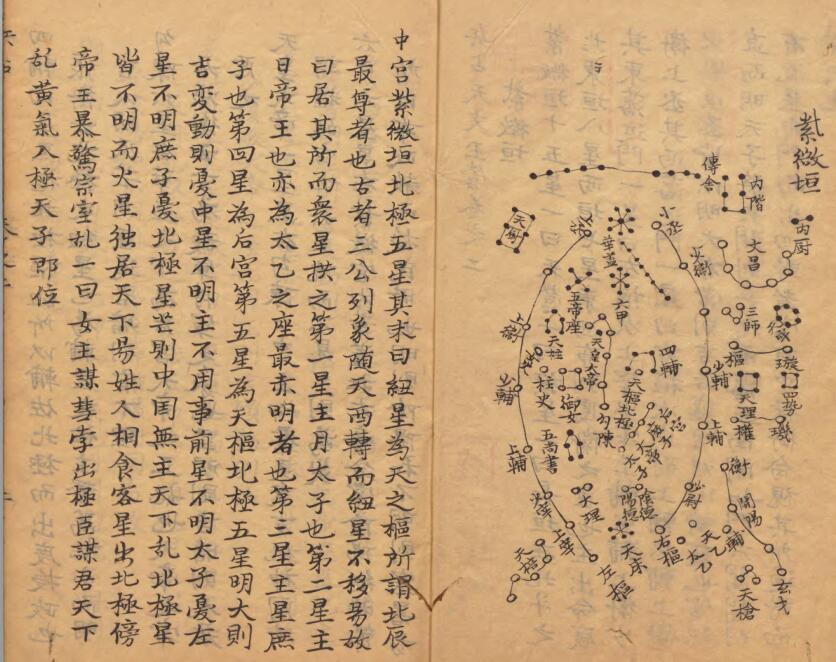 紫微垣
內階
傳舍
內厨
文昌
小丞
少衛
華蓋
天厨
六甲
五帝座
三師
天柱
天皇大帝
四輔
樞
璇
少輔
天理
四勢
柱史
御女
天樞北極
勾陳
權
璣
上輔
少輔
五尚書
上輔
后
庶子
太子
衡
大理
陽德
陰德
少尉
開陽
少宰
上宰
右樞
輔
天乙
太乙
天床
左樞
天棓
天槍
玄戈
中宮紫微垣北極五星其末曰紐星為天之樞所謂北辰
最尊者也古者三公列象随天西轉而紐星不移昜故
曰居其所而衆星拱之第一星主月太子也第二星主
日帝王也亦為太乙之座最赤明者也第三星主星庶
子也第四星為后宮第五星為天樞北極五星明大則
吉変動則憂中星不明主不用事前星不明太子憂左
星不明庶子憂北極星芒則中国無主天下乱北極星
皆不明而火星独居天下昜姓人相食客星出北極傍
帝王暴驚宗室乱一曰女主謀彗孛出極臣謀君天下
乱黄氣入極天子即位